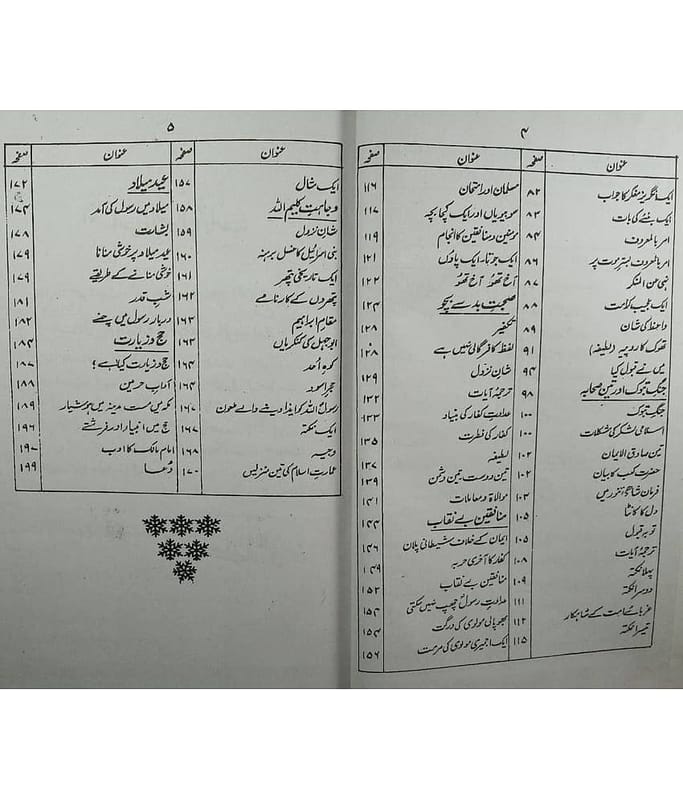 ۴
عنوان صفحہ
ایک انگریز مفکر کا جواب ۸۲
ایک بننے کی بات ۸۳
امر بالمعروف ۸۴
امر بالمعروف پر ۸۶
نہی عن المنکر
ایک عجیب کرامت ۸۸
واعظ کی شان ۸۹
تھوک کا روپیہ (لطیفہ) ۹۱
میں نے قبول کیا ۹۴
جنگِ تبوک اور تین صحابہ ۹۸
جنگِ تبوک ۱۰۰
اسلامی لشکر کی مشکلات ۱۰۰
تین صادق الایمان ۱۰۲
حضرت کعب کا بیان ۱۰۲
فرمان شاہی تنور میں ۱۰۳
دل کا کانٹا ۱۰۵
توبہ قبول ۱۰۵
ترجمۂ آیات
پہلا نکتہ ۱۰۹
دوسرا نکتہ ۱۱۱
غربائے امت کے شاہکار ۱۱۲
تیسرا نکتہ ۱۱۵
عنوان صفحہ
مسلمان اور امتحان ۱۱۶
اور ایک بچہ ۱۱۷
مومنین و منافقین کا انجام ۱۱۹
ایک جوتا۔ ایک پاؤں ۱۲۱
آخ تھو آخ تھو ۱۲۲
صحبتِ بد سے بچو ۱۲۴
تکفیر ۱۲۸
لفظ کافر گالی نہیں ہے ۱۲۸
شانِ نزول ۱۲۹
ترجمۂ آیات ۱۳۲
عداوتِ کفار کی بنیاد ۱۳۳
کفار کی فطرت ۱۳۵
لطیفہ ۱۳۷
تین دوست تین دشمن ۱۳۹
موالاۃ و معاملات ۱۴۱
منافقین بے نقاب ۱۴۴
ایمان کے خلاف شیطانی پلان ۱۴۶
کفار کا آخری حربہ ۱۴۹
منافقین بے نقاب ۱۵۲
عداوتِ رسول چھپ نہیں سکتی ۱۵۴
بھوپالی مولوی کی درگت ۱۵۴
ایک اجمیری مولوی کی مرمت ۱۵۶
۵
عنوان صفحہ
ایک مثال ۱۵۷
وجاہتِ کلیم اللہ ۱۵۸
شانِ نزول ۱۵۹
بنی اسرائیل کا غسل برہنہ ۱۶۰
ایک تاریخی پتھر ۱۶۱
پتھروں کے کارنامے ۱۶۲
مقامِ ابراہیم ۱۶۳
ابوجہل کی کنکریاں ۱۶۳
کوہِ اُحد ۱۶۴
حجرِ اسود ۱۶۴
رسول اللہ کو ایذا دینے والے ملعون ۱۶۷
ایک نکتہ ۱۶۷
وجیہہ ۱۶۸
عمارتِ اسلام کی تین منزلیں ۱۷۰
عنوان صفحہ
عیدِ میلاد ۱۷۲
میلاد میں رسول کی آمد ۱۷۴
بشارت ۱۷۸
عیدِ میلاد پر خوشی منانا ۱۷۹
خوشی منانے کے طریقے ۱۷۹
شبِ قدر ۱۸۱
دربارِ رسول میں ۱۸۲
حج و زیارت ۱۸۴
حج و زیارت کیا ہے؟ ۱۸۷
آدابِ حرمین ۱۸۸
مکہ میں مست مدینہ میں ہوشیار ۱۸۹
حج میں انبیاء اور فرشتے ۱۹۶
امام مالک کا ادب ۱۹۷
دُعا ۱۹۹